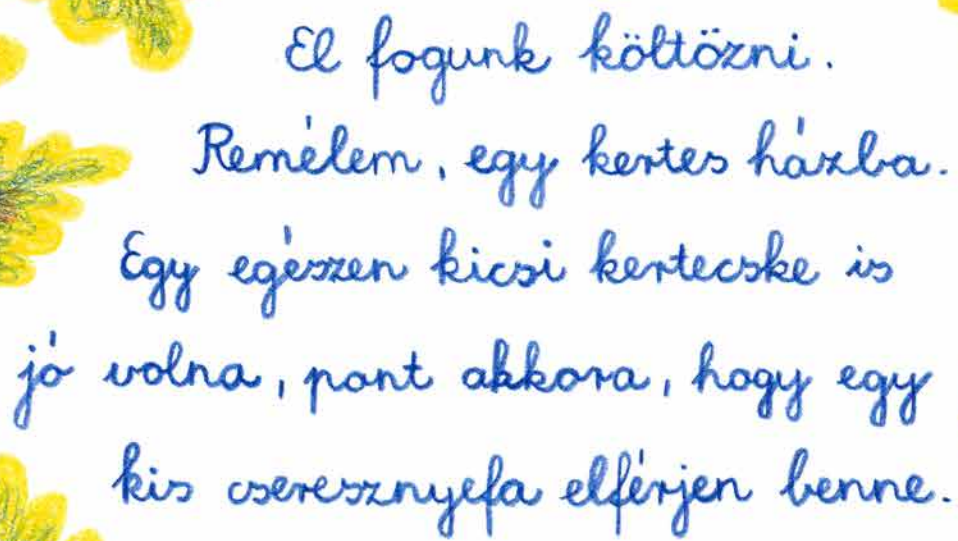 El fogunk költözni.
Remélem, egy kertes házba.
Egy egészen kicsi kertecske is
jó volna, pont akkora, hogy egy
kis cseresznyefa elférjen benne.